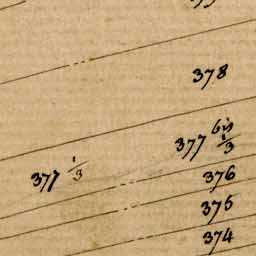 378
377 1/3
377 1/3
376
375
374